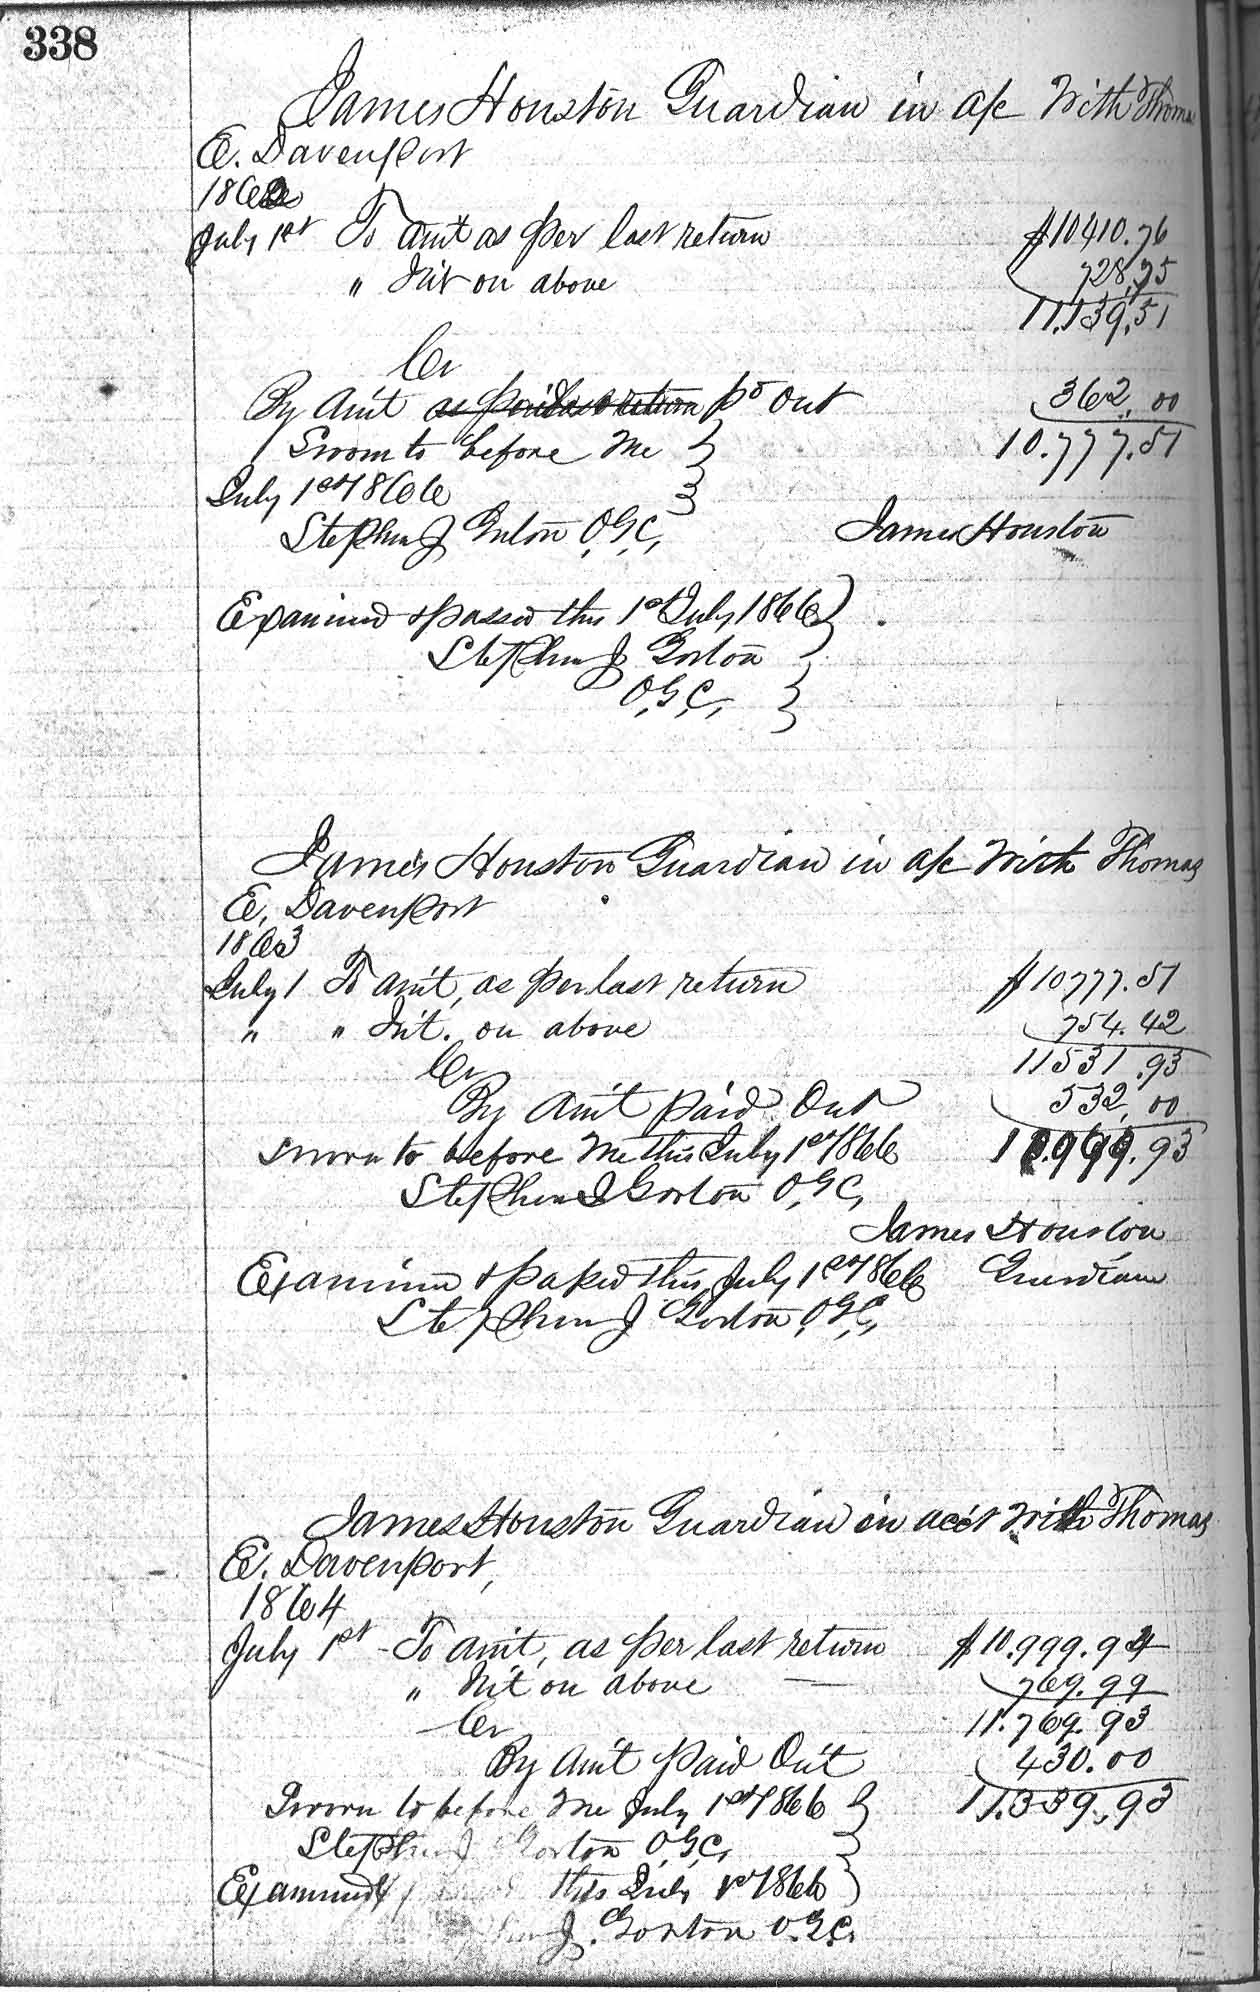 338
James Houston Guardian in a/c With Thomas
E. Davenport
1862
July 1st To am't as per last return $10410.76
" Int on above 728.75
11.139.51
Cr
By Am't as per last return pd out 362.00
Sworn to before Me 10.777.51
July 1st 1866
Stephen J Gorton O.G.C, James Houston
Examined & passed this 1st July, 1866
Stephen J Gorton
O,G,C,
James Houston Guardian in a/c With Thomas
E, Davenport
1863
July 1 To am't, as per last return $10777.51
" " Int. on above 754.42
Cr 11531.93
By Am't paid Out 532,00
Sworn to before Me this July 1st 1866 10.999.93
Stephen J Gorton O,G,C,
James Houston
Examined & passed this July 1st 1866 Guardian
Stephen J Gorton O,G,C,
James Houston Guardian in acc't With Thomas
E. Davenport,
1864
July 1st - To am't, as per last return $10.999.94
" Int on above — 769.99
Cr 11.769.93
By Am't Paid Out 430.00
Sworn to before Me July 1st 1866 11.339.93
Stephen J Gorton O,G,C,
Examined this July 1st 1866
J. Gorton O.G.C.